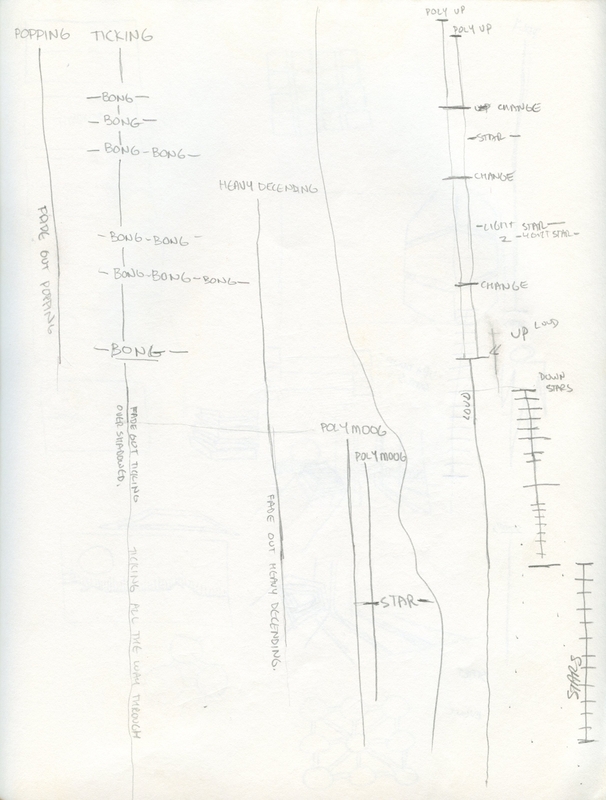 POPPING
TICKING
BONG
BONG
BONG-BONG
BONG-BONG
BONG-BONG-BONG
BONG
FADE OUT POPPING
FADE OUT TICKING
OVER SHADOWED.
TICKING ALL THE WAY THROUGH
HEAVY DECENDING
FADE OUT HEAVY DECENDING.
POLYMOOG
POLYMOOG
STAR
POLY UP
POLY UP
UP CHANGE
STAR
CHANGE
LIGHT STAR
2 LIGHT STAR
CHANGE
UP LOUD
LOUD
DOWN
STARS
STARS